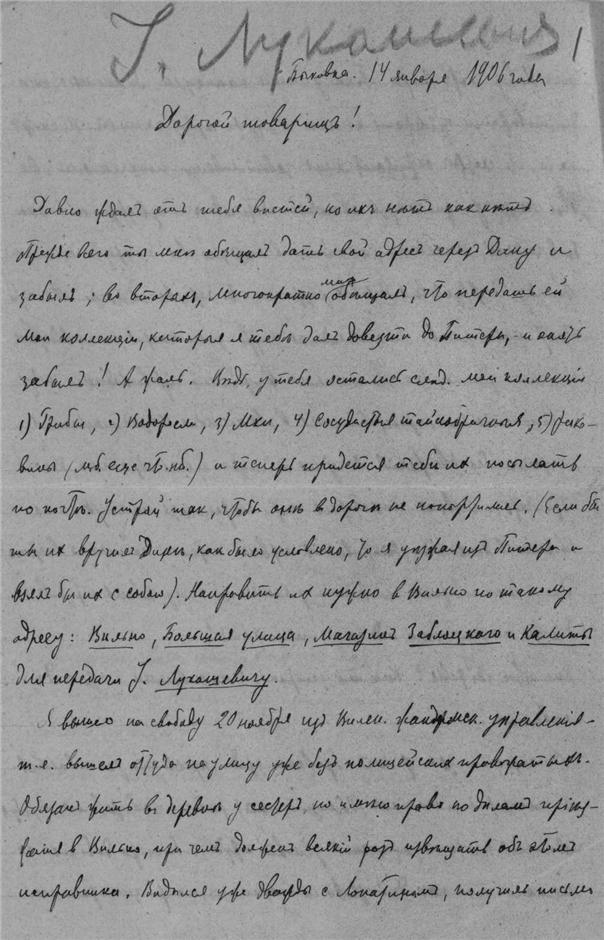 I. Лукашевич 1
Быковка. 14 января 1906 года
Дорогой товарищъ!
Давно ждалъ отъ тебя вѣстей, но ихъ нѣтъ какъ нѣтъ.
Прежде всего ты мнѣ обѣщалъ дать свой адресъ черезъ Дину и
забылъ; во вторыхъ, многократно мнѣ обѣщалъ, что передашь ей
мои коллекціи, которыя я тебѣ далъ довезти до Питера, – и опять
забылъ! А жаль. Вѣдь, у тебя остались слѣд. мои коллекціи
1) Грибы, 2) Водоросли, 3) Мхи, 4) Сосудистыя тайнобрачныя, 5) рако-
вины (мб. еще чт. нб.) и теперь придется тебѣ ихъ посылать
по почтѣ. Устрой такъ, чтобы онѣ в дорогѣ не попортились. (Если бы
ты их вручилъ Динѣ, как было условлено, то я уѣзжая изъ Питера и
взялъ бы их с собою). Направить их нужно в Вильно по такому
адресу: Вильно, Большая улица, Магазинъ Заблоцкого и Калиты
для передачи I. Лукашевичу.
Я вышелъ на свободу 20 ноября изъ Вилен. жандармск. управленія –
т.е. вышелъ оттуда на улицу уже безъ полицейскихъ провожатыхъ.
Обязанъ жить въ деревнѣ у сестеръ, но имѣю право по дѣламъ пріѣз-
жать в Вильно, при чемъ долженъ всякій разъ извѣщать объ этомъ
исправника. Видѣлся уже дважды с Лопатинымъ, получилъ письма